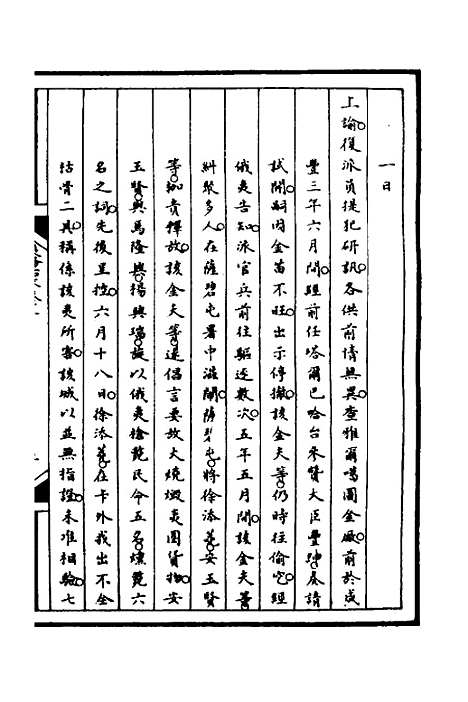 一日
上諭復派員提犯研訊各供前情無異查雅爾噶圖金廠前於咸
豐三年六月間經前任塔爾巴哈台參贊大臣豐紳奏請
試開嗣因金苗不旺出示停撤該金夫等仍時往偷挖經
俄夷告知派官兵前往驅逐數次五年五月間該金夫等
糾聚多人在薩碧屯署中滋鬧薩碧屯將徐添堯安玉賢
等枷責釋放該金夫等遂倡言要放火燒燬夷圈貨物安
玉賢與馬隆興楊興瑞旋以俄夷槍斃民命五名燻斃六
名之詞先後呈控六月十八日徐添堯在卡外找出不全
枯骨二具稱係該夷所害該城以並無指證未准相驗七